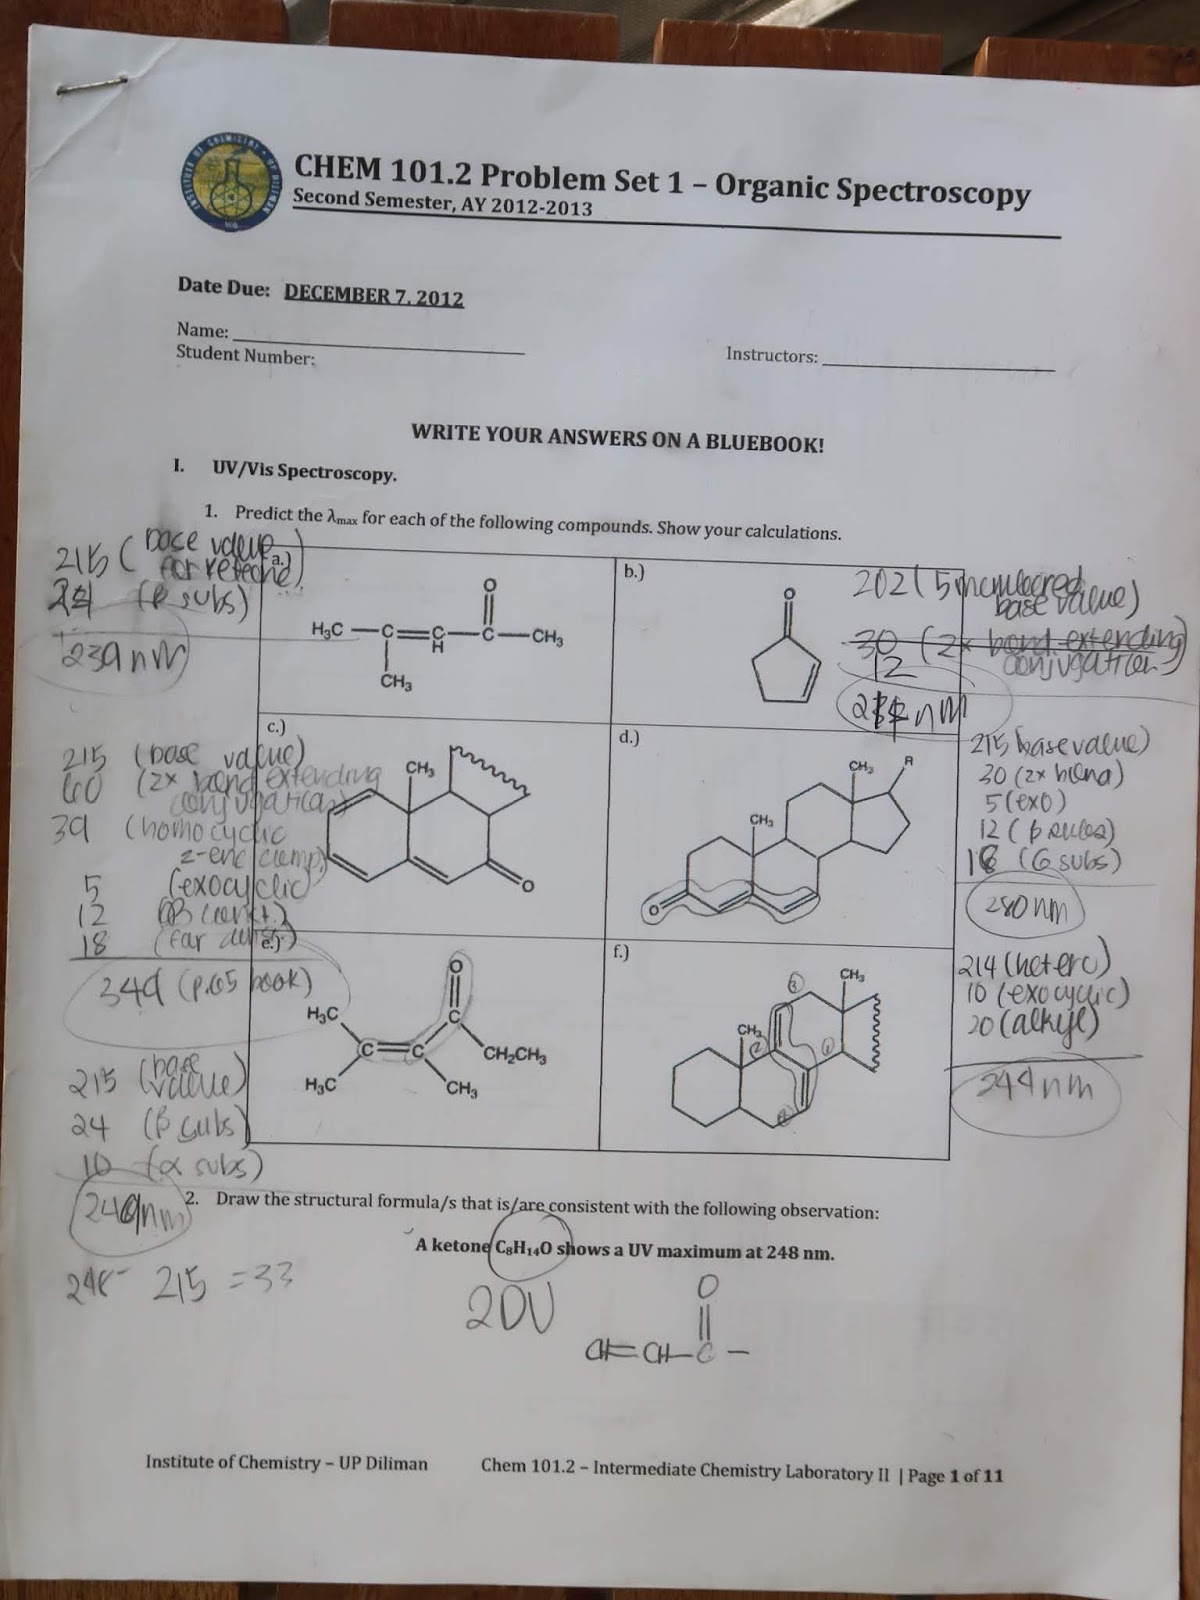 CHEM 101.2 Problem Set 1 – Organic Spectroscopy
Second Semester, AY 2012-2013
Date Due: DECEMBER 7, 2012
Name:
Student Number:
Instructors:
WRITE YOUR ANSWERS ON A BLUEBOOK!
I. UV/Vis Spectroscopy.
1. Predict the λmax for each of the following compounds. Show your calculations.
215 (base value
for ketone)
24 (β subs)
239 nm
a.)
O
H₃C — C = C — C — CH₃
H
CH₃
b.)
O
202 (5 membered
base value)
30 (2x bond extending
conjugation)
12
nm
c.)
CH₃
O
215 (base value)
60 (2x bond extending
conjugation)
39 (homocyclic
5 (exocyclic)
12
18 (far
349 (p.65 book)
d.)
CH₃
R
CH₃
O
215 (base value)
30 (2x bond)
5 (exo)
12 (β
18 (6 subs)
280 nm
e.)
O
H₃C
C
C=C
CH₂CH₃
H₃C
CH₃
215 (base
value)
24 (β subs)
10 (α subs)
nm
f.)
3
CH₃
CH₃
2
1
4
214 (hetero)
10 (exocyclic)
20 (alkyl)
244 nm
2. Draw the structural formula/s that is/are consistent with the following observation:
A ketone C₈H₁₄O shows a UV maximum at 248 nm.
248 - 215 = 33
2DU
O
CH=CH–C –
Institute of Chemistry – UP Diliman Chem 101.2 – Intermediate Chemistry Laboratory II | Page 1 of 11